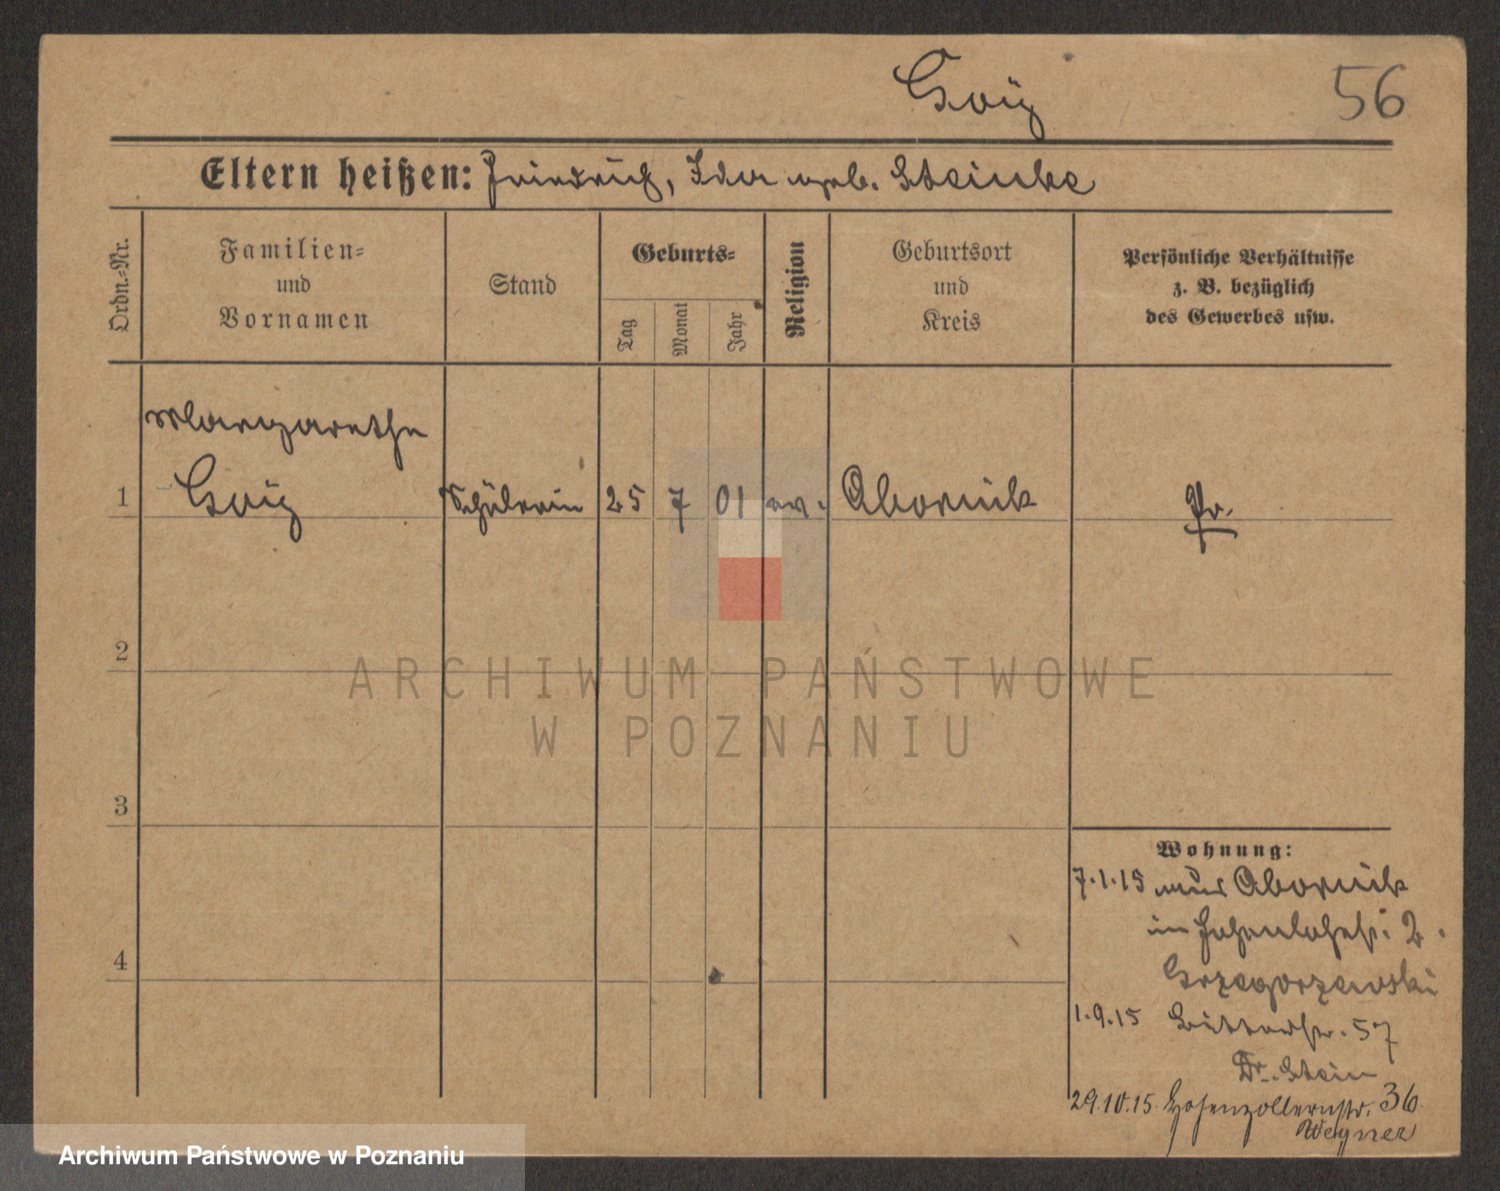 Goiz
56
Eltern heißen: Friedrich, Ida geb. Steinke
Ordn.-Nr.
Familien-
und
Vornamen
Stand
Geburts-
Tag
Monat
Jahr
Religion
Geburtsort
und
Kreis
Persönliche Verhältnisse
z. B. bezüglich
des Gewerbes usw.
Margarethe
1 Goiz Schülerin 25 7 01 ev. Obornik Pr.
2
3
4
Wohnung:
7.1.15 aus Obornik
in Hohenlohestr. 2.
Grzegorzewski
1.9.15 Ritterstr. 57
Dr. Stein
29.10.15. Hohenzollernstr. 36
Wegner
ARCHIWUM PAŃSTWOWE
W POZNANIU
Archiwum Państwowe w Poznaniu